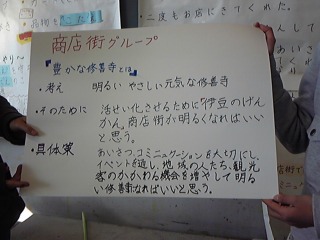 二度もお店にきてくれた。
商店街グループ
『豊かな修善寺とは』
・考え 明るい やさしい元気な修善寺
・そのために 活せい化させるために"伊豆のげん
かん"商店街が明るくなればいい
と思う。
・具体案 あいさつ、コミュニケーションを大切にし、
イベントを通し、地域の人たち、観光
客のかかわる機会を増やして明る
い修善寺になればいいと思う。